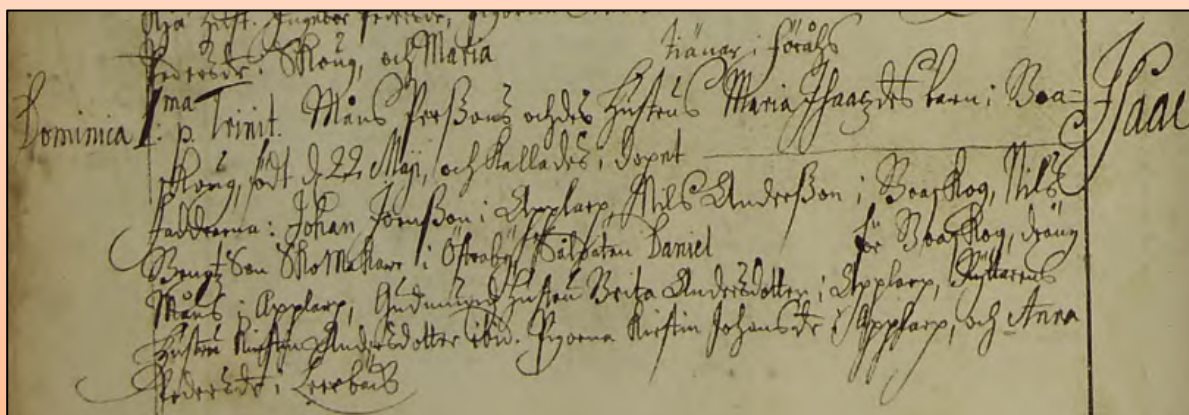 Hust. Ingebor Pedersdr,
Pedersdr i Skoug, och Maria tiänar i
Dominica 1ma p. Trinit. Måns Perßons och des Hustrus Maria Isaacsdr des barn i Boa=
skoug, födt d. 22 Maji, och kallades i dopet Isaac
Faddrarna: Johan Jönßon i Applarp, Nils Anderßon i Boaskog, Nils
Bengtson Skomakare i Öfraby, Såldaten Daniel för Boaskog, dräng
Måns i Applarp, Gudmunds Hustru Brita Andersdotter i Applarp, Ryttarens
Hustru Kirstin Andersdotter ibid. Pigorna Kirstin Johansdr i Applarp, och Anna
Pedersdr i